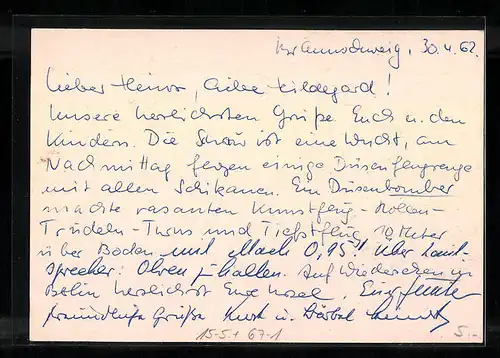 Braunschweig, 30.4.62.
Lieber Heinz, liebe Hildegard!
Unsere herzlichsten Grüße Euch u. den
Kindern. Die Schau ist eine Wucht, am
Nachmittag flogen einige Düsenflugzeuge
mit allen Schikanen. Ein Düsenbomber
machte rasanten Kunstflug - Rollen-
Trudeln - Turns und Tiefstflug 10 Meter
über Boden mit Mach 0,95! über Laut-
sprecher: Ohren zuhalten. Auf Wiedersehen in
Berlin herzlichst Euer
freundliche Grüße Kurt u. Bärbel
15-5+ 67-1
5.-